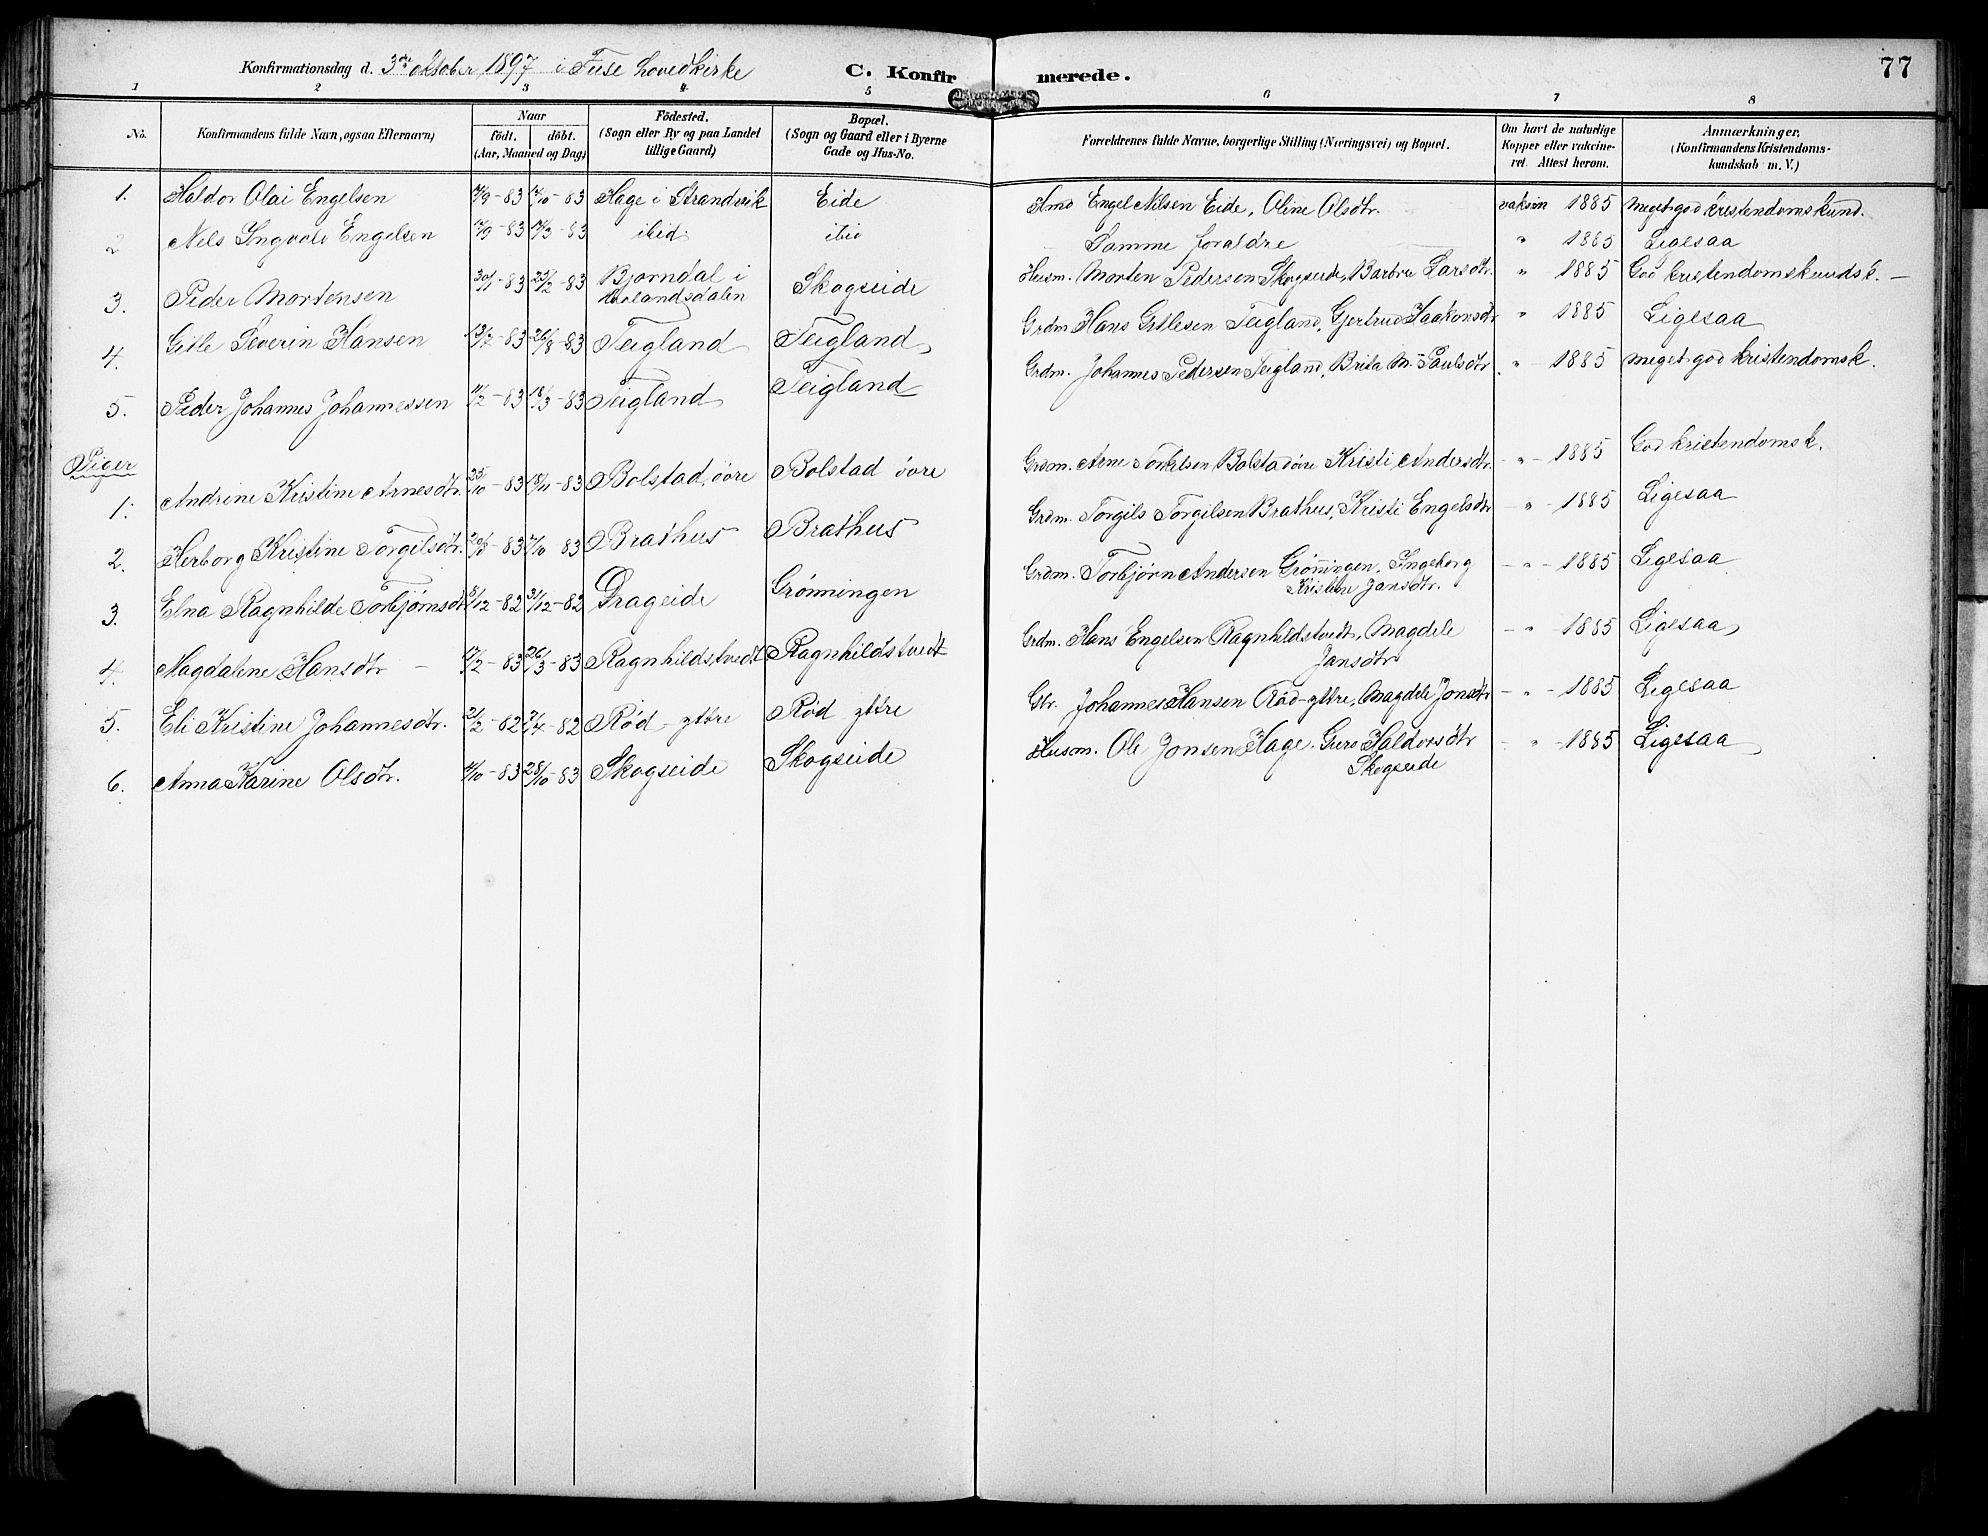 Konfirmationsdag d. 3die oktober 1897 i Fuse hovedkirke C. Konfirmerede. 77
1 2 3 4 5 6 7 8
No. Konfirmandens fulde Navn, ogsaa Efternavn) Naar født. døbt. (Aar, Maaned og Dag) Fødested. (Sogn eller By og paa Landet tillige Gaard) Bopæl. (Sogn og Gaard eller i Byerne Gade og Hus-No. Forældrenes fulde Navne, borgerlige Stilling (Næringsvei) og Bopæl. Om havt de naturlige Kopper eller vakcineret. Attest herom. Anmærkninger, (Konfirmandens Kristendomskundskab m. V.)
1. Haldor Olai Engelsen /9-83 /10-83 Hage i Strandvik Eide Engel Nilsen Eide, Oline Olsdtr. vaksin 1885 Meget god kristendomskund.
2 Nels Ingvald Engelsen /9-83 /3-83 ibid. ibid Samme forældre " 1885 Ligesaa
3. Peder Mortensen 30/1-83 25/2-83 Bjørndal i Holandsdalen Skogseide Husm. Morten Pedersen Skogseide, Barbra Larsdtr. " 1885 God kristendomskundsk. -
4. Gitle Severin Hansen 13/7-83 26/8-83 Teigland Teigland Grdm. Hans Gitlesen Teigland, Gjertrud Haakonsdtr " 1885 Ligesaa
5. Peder Johannes Johannessen /2-83 18/3-83 Teigland Teigland Grdm. Johannes Pedersen Teigland, Brita M. Paulsdtr. " 1885 meget god kristendomsk.
Piger
1. Andrine Kristine Arnesdtr. 25/10-83 18/11-83 Bolstad, øvre Bolstad øvre Grdm. Arne Torkelsen Bolstad øvre Kristi Andersdtr. - " - 1885 God kristendomsk.
2. Herborg Kristine Torgilsdtr. 20/8-83 7/10-83 Brathus Brathus Grdm. Torgils Torgilsen Brathus, Kristi Engelsdtr - " - 1885 Ligesaa
3. Elna Ragnhilde Torbjørnsdtr /12-82 31/12-82 Drageide Grønningen Grdm. Torbjørn Andersen Grønningen, Ingeborg Kristine Jansdtr. - " - 1885 Ligesaa
4. Magdalene Hansdtr - /2-83 26/3-83 Ragnhildstvedt Ragnhildstvedt Grdm. Hans Engelsen Ragnhildstvedt, Magdele Jansdtr - " - 1885 Ligesaa
5. Eli Kristine Johannesdtr. 21/2-82 7/4-82 Rød - yttre Rød yttre Gbr. Johannes Hansen Rød - yttre, Magdele Jonsdtr - " - 1885 Ligesaa
6. Anna Karine Olsdtr. /10-83 28/10-83 Skogseide Skogseide Husm. Ole Jonsen Hage. Guro Haldorsdtr Skogseide - " - 1885 Ligesaa